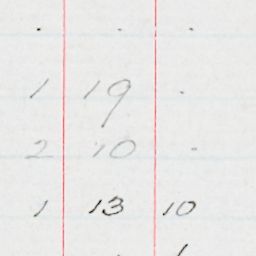 . . .
1 19 .
2 10 .
1 13 10